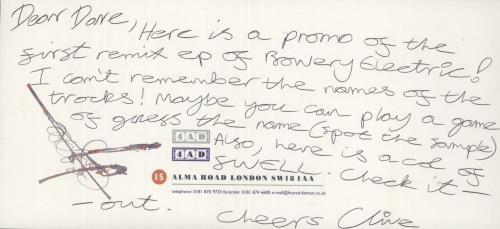 Dear Dave, Here is a promo of the
first remix ep of Bowery Electric!
I can't remember the names of the
tracks! Maybe you can play a game
of guess the name (spot the sample)
Also, here is a cd of
SWELL. Check it —
— out.
Cheers Clive
4AD
4AD
15 ALMA ROAD LONDON SW18 1AA
telephone: 0181 870 9724 facsimile: 0181 874 6600 e-mail@fourad.demon.co.uk